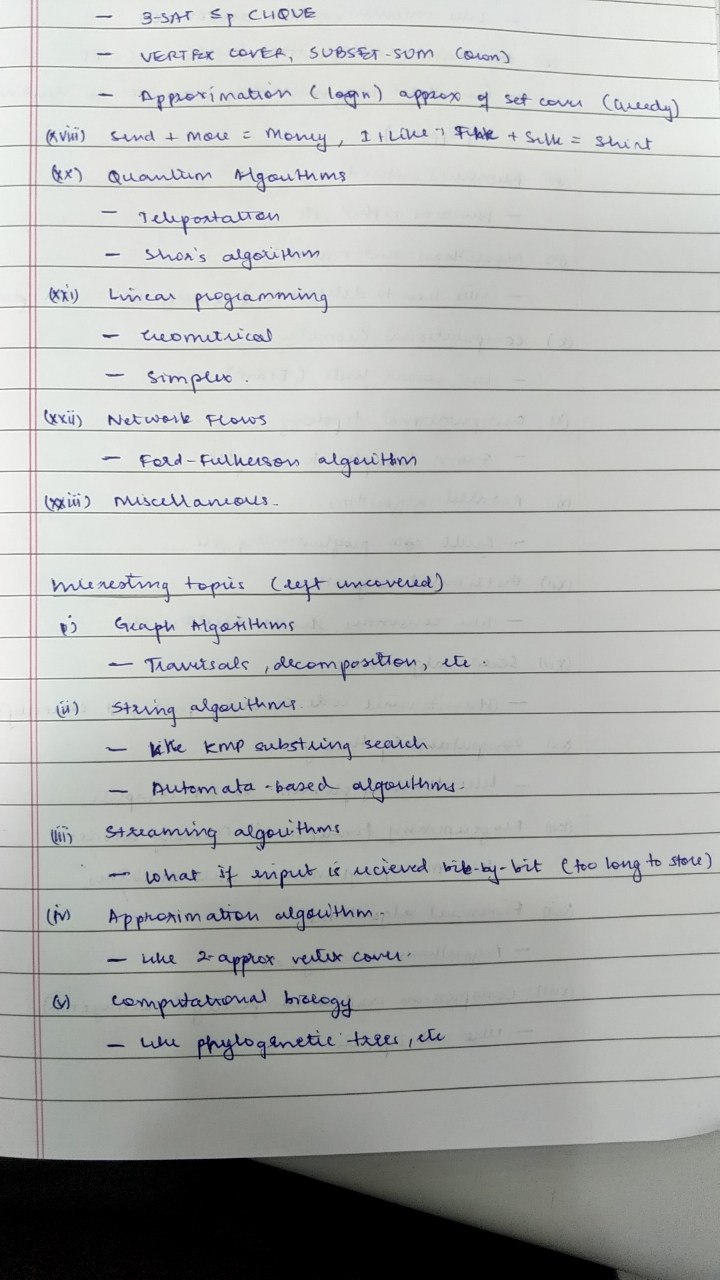 - 3-SAT ≤p CLIQUE
- VERTEX COVER, SUBSET-SUM
- Approximation (logn) approx of set cover (Greedy)
(xviii) Send + More = Money, I + Like + + Silk = Shirt
(xx) Quantum Algorithms
- Teleportation
- Shor's algorithm
(xxi) Linear programming
- Geometrical
- Simplex.
(xxii) Network Flows
- Ford-Fulkerson algorithm
(xxiii) Miscellaneous.
Interesting topics (left uncovered)
i) Graph Algorithms
- Traversals, decomposition, etc.
(ii) String algorithms.
- like KMP substring search
- Automata-based algorithms.
(iii) Streaming algorithms
- What if input is recieved bit-by-bit (too long to store)
(iv) Approximation algorithm.
- like 2-approx vertex cover.
(v) Computational biology
- like phylogenetic trees, etc